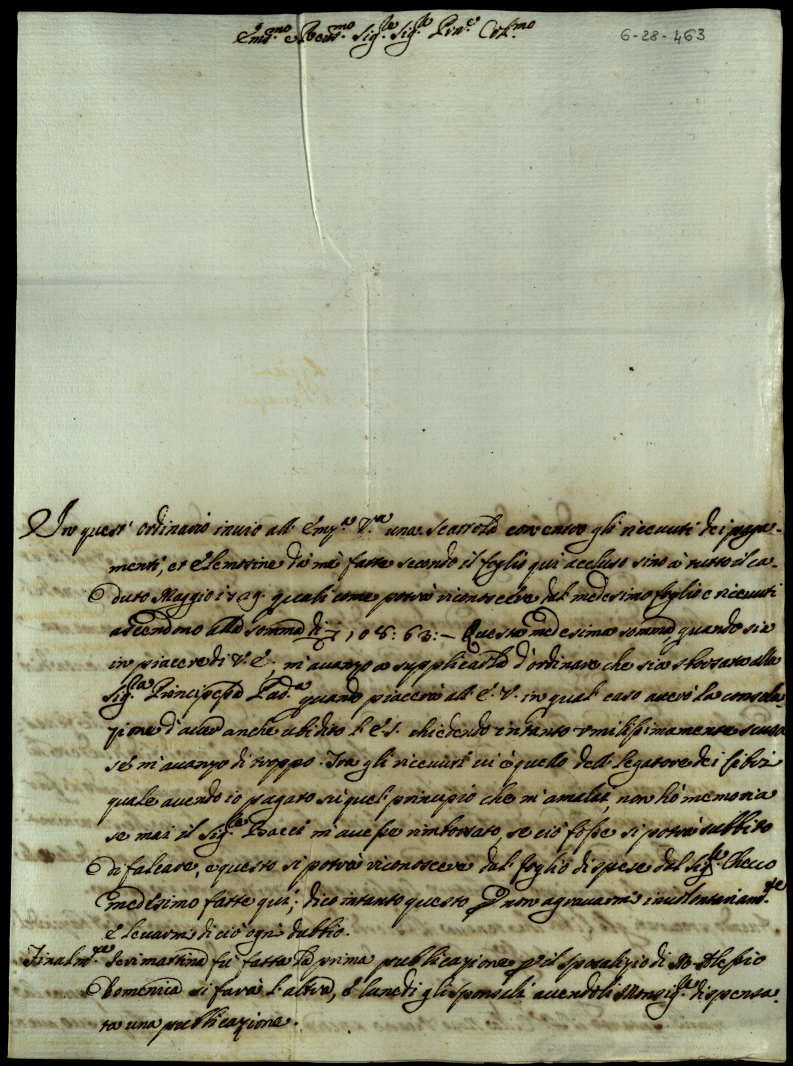 Em.mo e Rev.mo Sig.re Sig.re Pne Col.mo
6-28-463
In quest' ordinario invio all' Em.za V.ra una Scattola con entro gli ricevuti dei paga-
menti, et Elemosine da me fatte secondo il foglio qui accluso sino à tutto il ca-
duto Maggio 1729. quali come potrà riconoscere dal medesimo foglio e ricevuti
ascendono alla somma di 108: 63: — Questa medesima somma quando sia
in piacere di V. E., m'avanzo a supplicarla d'ordinare che sia sborsata alla
Sig.ra Principessa Pad.a quando piacerà all' E. V. in qual caso averò la consola-
zione d'aver anche ubidito l' E. S. chiedendo intanto umilissimamente scusa
se m'avanzo di troppo. Tra gli ricevuti vi è quello dell legatore dei libri
quale avendo io pagato sù quel principio che m'amalai, non hò memoria
se mai il Sig.re Bacci m'avesse rimborsato, se ciò fosse si potrà subbito
difalcare, e questo si potrà riconoscere dal foglio di spese dal Sig.re Checco
medesimo fatte qui; dico intanto questo p non agravarmi involontariam.te
e levarmi di ciò ogni dubbio.
Finalm.te Ierimattina fù fatta la prima pubblicazione p il sposalizio di M. Alessio
Domenica si farà l'altra, e lunedi gli sponsali avendoli Monsig.re dispensa-
ta una pubblicazione.